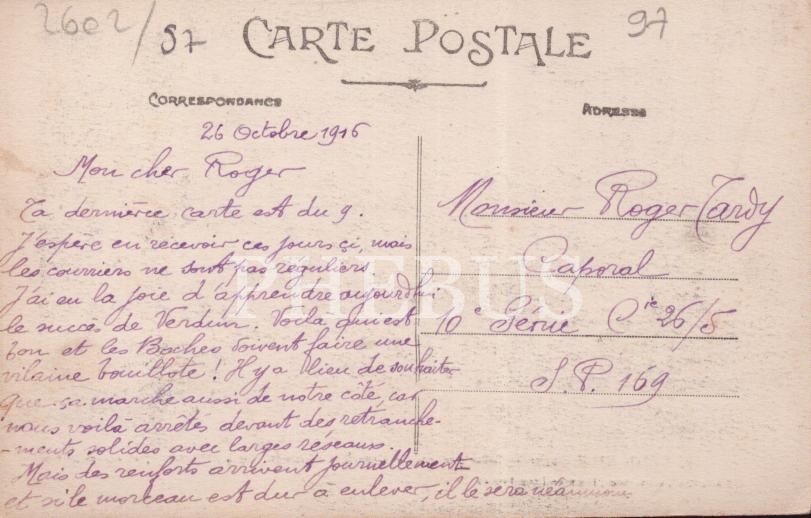 2602/57
CARTE POSTALE
97
CORRESPONDANCE
26 Octobre 1916
Mon cher Roger
Ta dernière carte est du 9.
J'espère en recevoir ces jours çi, mais
les courriers ne sont pas réguliers
J'ai eu la joie d'apprendre aujourd'hui
le succès de Verdun. Voilà qui est
bon et les Boches doivent faire une
vilaine bouillote ! Il y a lieu de souhaiter
que ça marche aussi de notre côté, car
nous voilà arrêtés devant des retranche-
-ments solides avec larges réseaux.
Mais des renforts arrivent journellement
et si le morceau est dur à enlever, il le sera néanmoins
ADRESSE
Monsieur Roger Tardy
Caporal
10e Série Cie 26/5
S.P. 169
PHEBUS